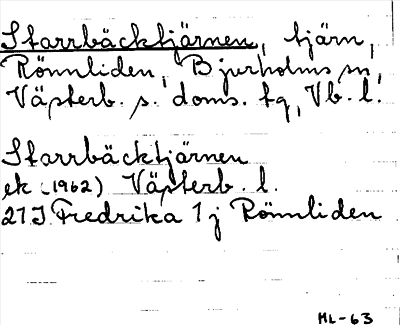 Starrbäcktjärnen, tjärn,
Rönnliden, Bjurholms sn,
Västerb. s. doms. tg, Vb. l.
Starrbäcktjärnen
ek (1962) Västerb. l.
21J Fredrika 1j Rönnliden
ML-63